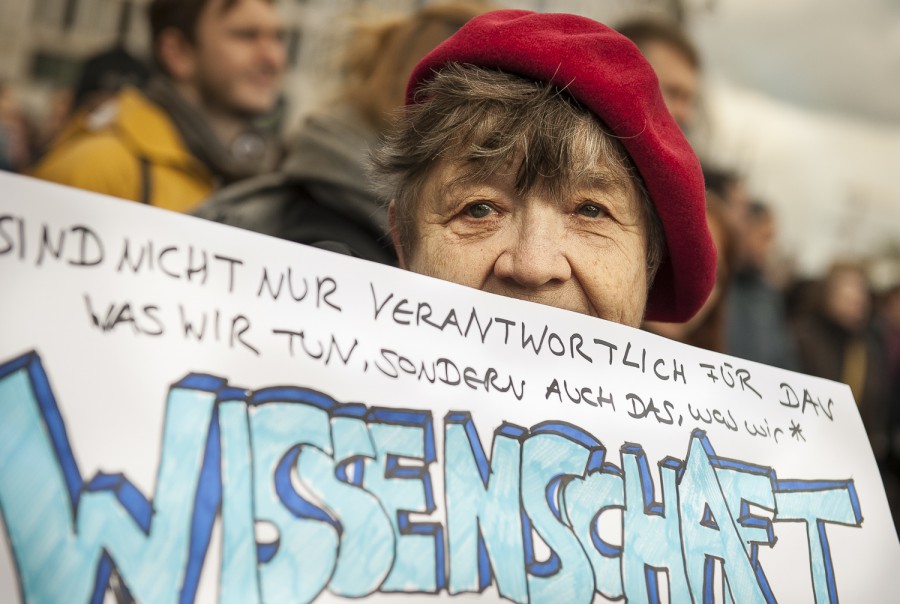 SIND NICHT NUR VERANTWORTLICH FÜR DAS
WAS WIR TUN, SONDERN AUCH DAS, WAS WIR*
WISSENSCHAFT